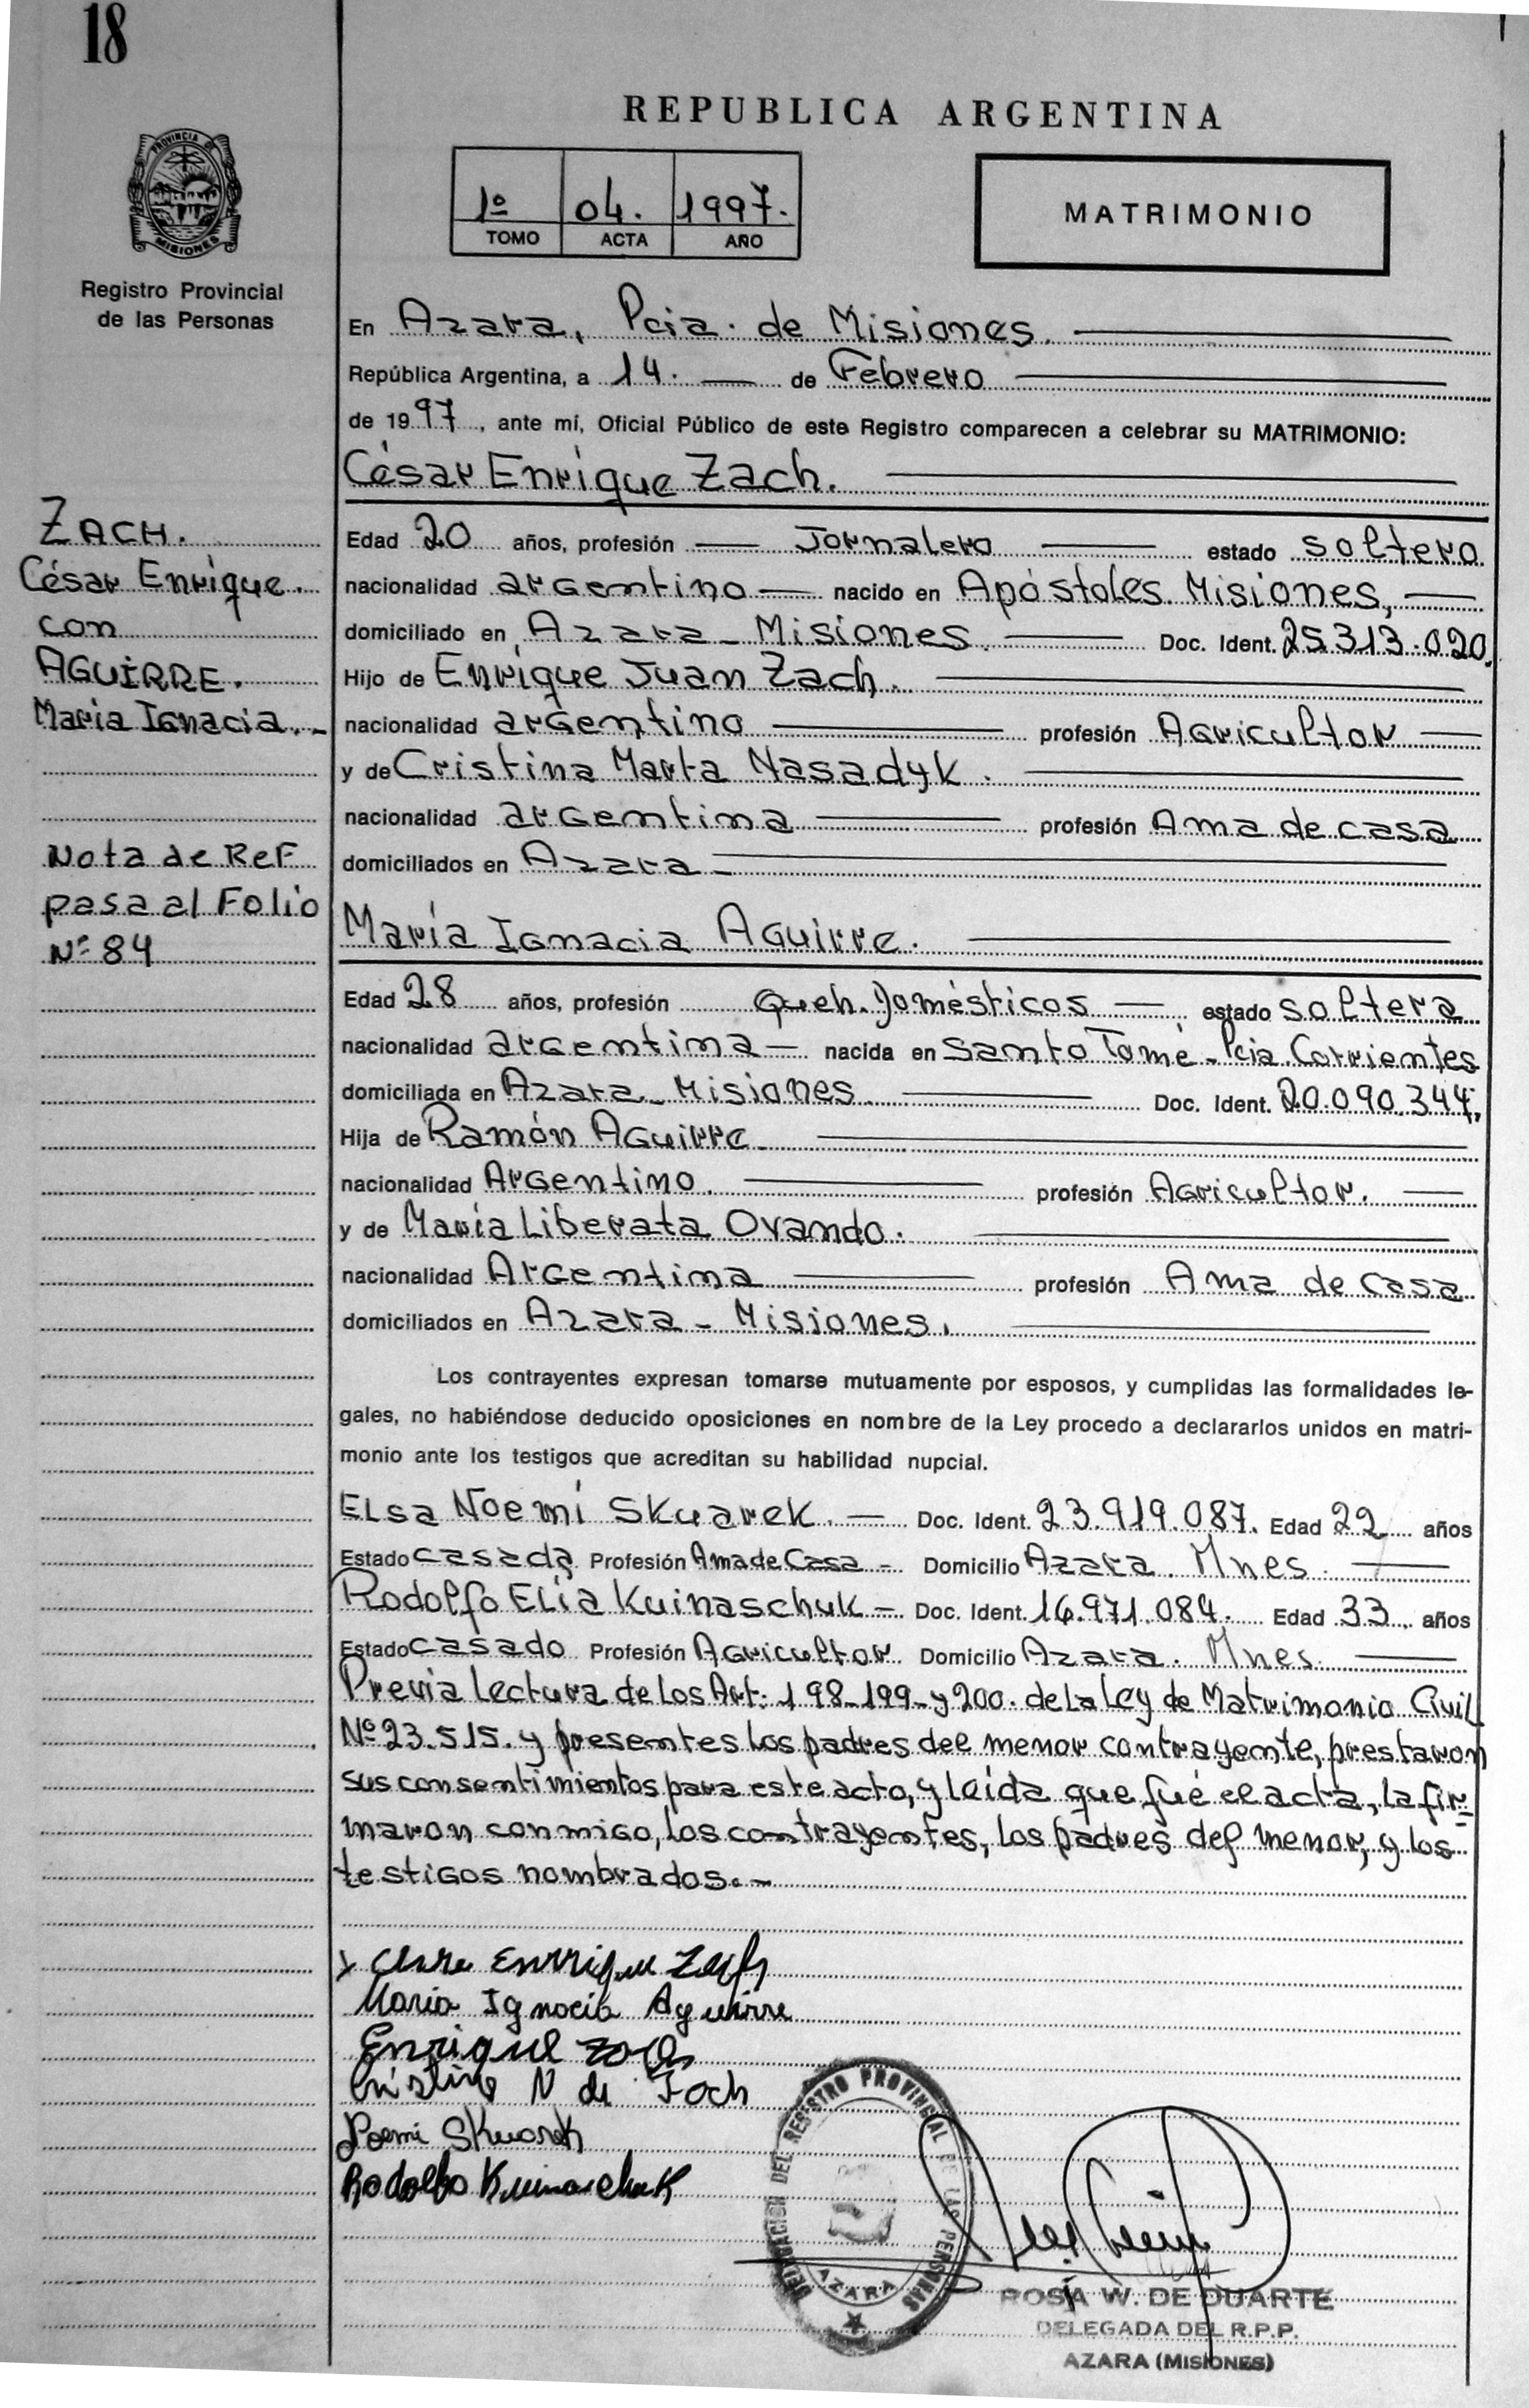 18
REPUBLICA ARGENTINA
PROVINCIA DE
MISIONES
1º 04. 1997.
TOMO ACTA AÑO
MATRIMONIO
Registro Provincial
de las Personas
En Azara, Pcia. de Misiones.
República Argentina, a 14. de Febrero
de 1997, ante mí, Oficial Público de este Registro comparecen a celebrar su MATRIMONIO:
César Enrique Zach.
ZACH.
César Enrique.
con
AGUIRRE.
María Ignacia.-
Nota de Ref
pasa al Folio
Nº 84
Edad 20 años, profesión Jornalero estado soltero
nacionalidad argentino nacido en Apóstoles Misiones,
domiciliado en Azara - Misiones. Doc. Ident. 25.313.020.
Hijo de Enrique Juan Zach.
nacionalidad argentino profesión Agricultor
y de Cristina Marta Nasadyk.
nacionalidad argentina profesión Ama de casa
domiciliados en Azara -
María Ignacia Aguirre.
Edad 28 años, profesión Queh. Domésticos estado soltera
nacionalidad argentina nacida en Santo Tomé - Pcia. Corrientes
domiciliada en Azara - Misiones. Doc. Ident. 20.090.344.
Hija de Ramón Aguirre
nacionalidad Argentino. profesión Agricultor.
y de María Liberata Ovando.
nacionalidad Argentina profesión Ama de casa
domiciliados en Azara - Misiones.
Los contrayentes expresan tomarse mutuamente por esposos, y cumplidas las formalidades le-
gales, no habiéndose deducido oposiciones en nombre de la Ley procedo a declararlos unidos en matri-
monio ante los testigos que acreditan su habilidad nupcial.
Elsa Noemí Skuarek. Doc. Ident. 23.919.087. Edad 22 años
Estado casada Profesión Ama de Casa - Domicilio Azara. Mnes.
Rodolfo Elía Kuinaschuk - Doc. Ident. 16.971.084. Edad 33 años
Estado casado Profesión Agricultor Domicilio Azara. Mnes.
Previa lectura de los Art. 198-199-y 200. de la Ley de Matrimonio Civil
Nº 23.515. y presentes los padres del menor contrayente, prestaron
sus consentimientos para este acto, y leída que fué el acta, la fir-
maron conmigo, los contrayentes, los padres del menor, y los
testigos nombrados.-
Enrrique Zach
Maria Ignacia Aguirre
Enrique Zach
Cristina N de Zach
Noemi Skuarek
Rodolfo Kuinaschuk
DELEGACION DEL REGISTRO PROVINCIAL DE LAS PERSONAS
AZARA
ROSA W. DE DUARTE
DELEGADA DEL R.P.P.
AZARA (MISIONES)